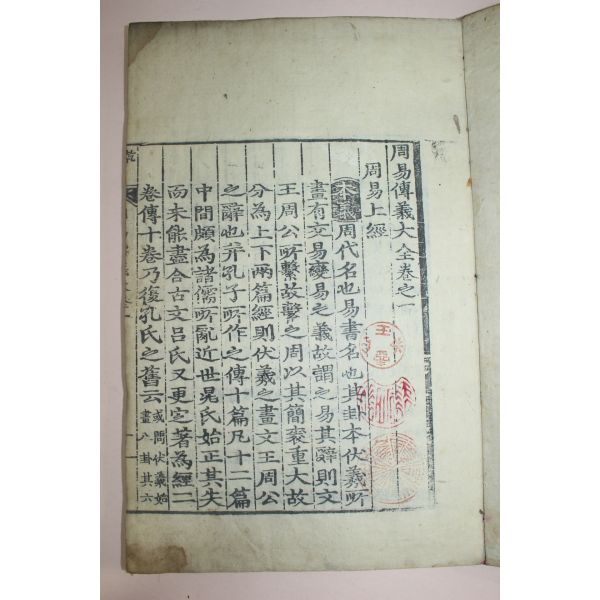 周易傳義大全卷之一
周易上經
本義周代名也易書名也其卦本伏羲所
畫有交易變易之義故謂之易其辭則文
王周公所繫故繫之周以其簡袠重大故
分為上下兩篇經則伏羲之畫文王周公
之辭也并孔子所作之傳十篇凡十二篇
中間頗為諸儒所亂近世晁氏始正其失
而未能盡合古文呂氏又更定著為經二
卷傳十卷乃復孔氏之舊云
或問伏羲始
畫八卦其六